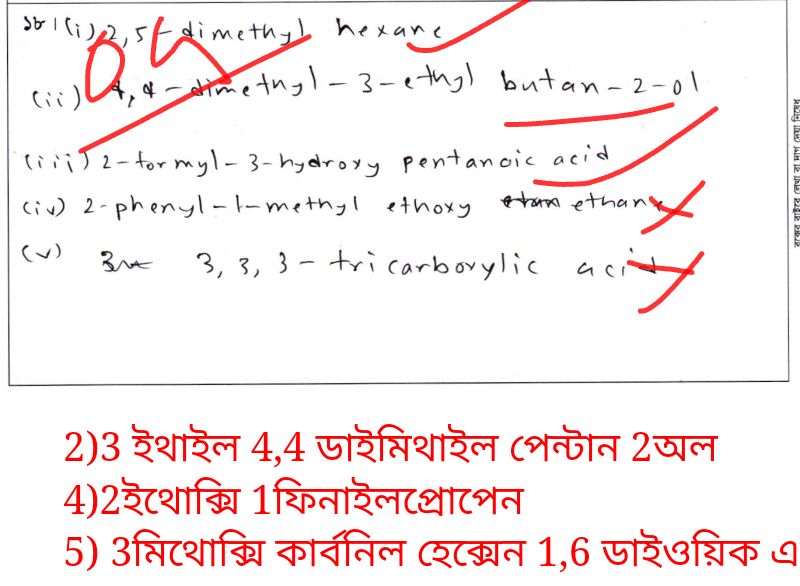 ১৮।(i) 2,5-dimethyl hexane
(ii) 4,4-dimethyl-3-ethyl butan-2-ol
(iii) 2-formyl-3-hydroxy pentanoic acid
(iv) 2-phenyl-1-methyl ethoxy ethane
(v) 3,3,3-tricarboxylic acid
বক্সের বাইরে লেখা বা দাগ দেয়া নিষেধ
2)3 ইথাইল 4,4 ডাইমিথাইল পেন্টান 2অল
4)2ইথোক্সি 1ফিনাইলপ্রোপেন
5) 3মিথোক্সি কার্বনিল হেক্সেন 1,6 ডাইওয়িক এ